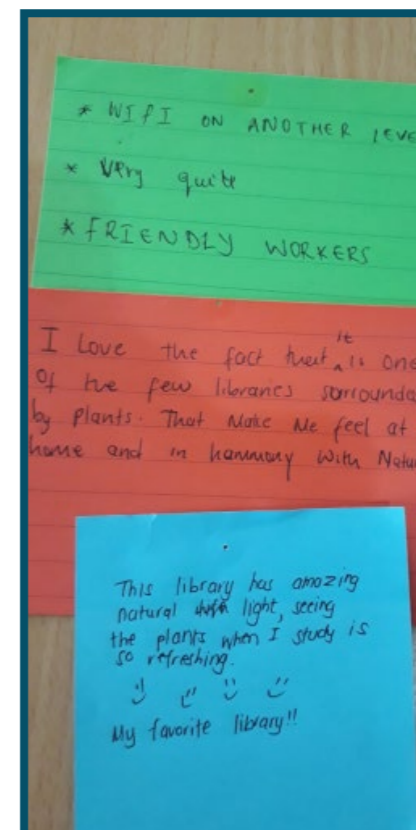 * WIFI ON ANOTHER LEVE
* Very quite
* FRIENDLY WORKERS
it
I Love the fact that ^ is one
of the few libraries sorrounde
by plants. That Make Me feel at
home and in hammony With Natu
This library has amazing
natural light, seeing
the plants when I study is
so refreshing.
My favorite library!!